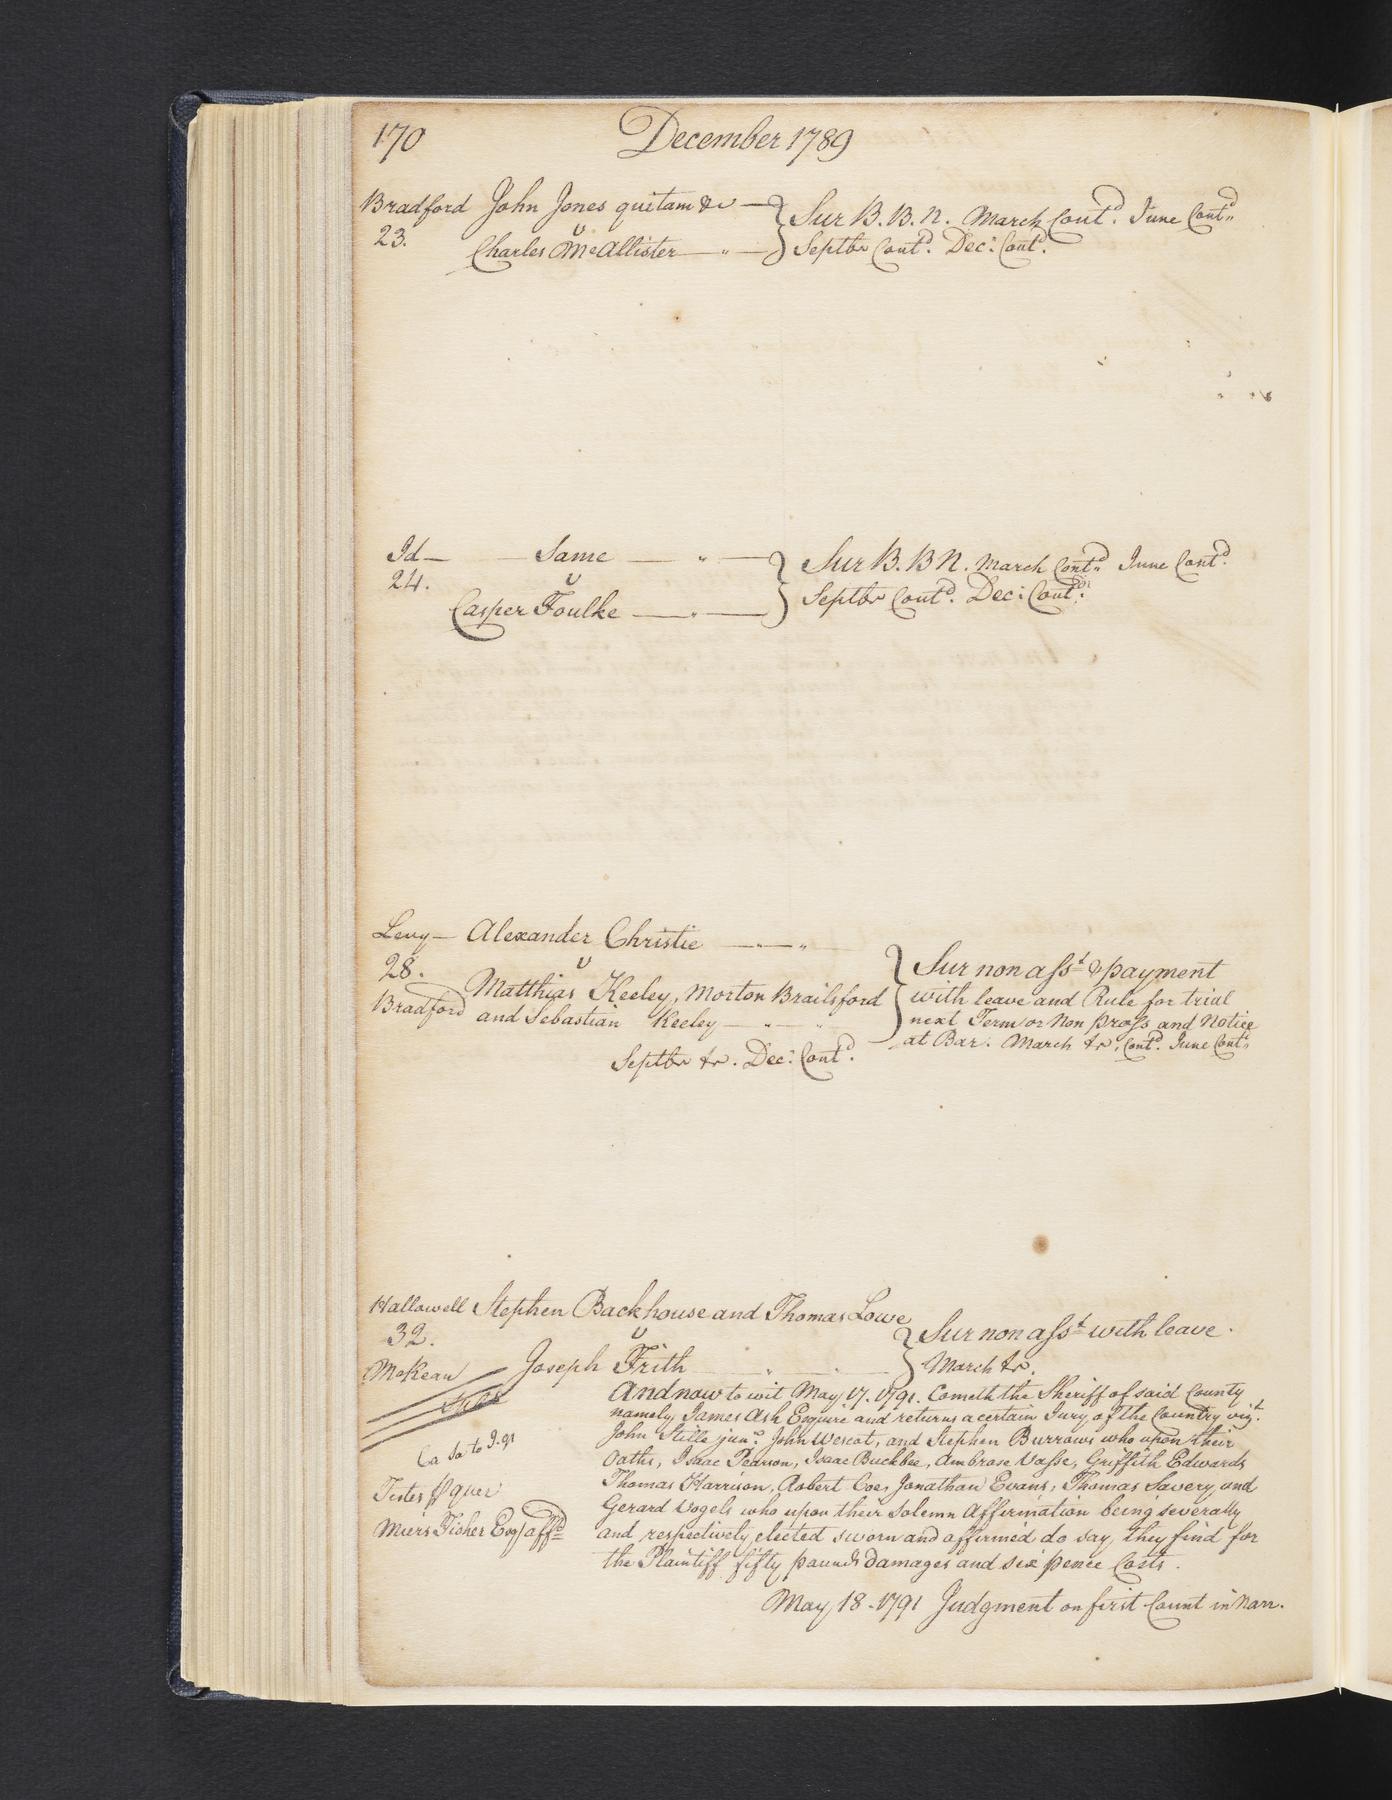 170 December 1789
Bradford John Jones quitam &c } Sur B. B. N. March Contd. June Contd.
23. v
Charles McAllister } Septbr Contd. Dec: Contd.
Id — Same } Sur B. B N. March Contd. June Contd.
24. v
Casper Foulke } Septbr Contd. Dec: Contd.
Levy — Alexander Christie
28. v } Sur non asst. & payment
Bradford Matthias Keeley, Morton Brailsford with leave and Rule for trial
and Sebastian Keeley next Term or Non pross and Notice
at Bar. March &c. Contd. June Contd.
Septbr &c. Dec: Contd.
Hallowell Stephen Backhouse and Thomas Lowe
32. v } Sur non asst. with leave.
McKean Joseph Frith } March &c.
And now to wit May 17. 1791. Cometh the Sheriff of said County
namely James Ash Esquire and returns a certain Jury of the Country vizt.
John Stille junr. John Wescot, and Stephen Burrows who upon their
Ca Sa to J. 91
Oaths, Isaac Pearson, Isaac Buckbee, Ambrose Vasse, Griffith Edwards
Thomas Harrison, Robert Coe, Jonathan Evans, Thomas Savery, and
Testes quer
Gerard Vogels who upon their solemn Affirmation being severally
Miers Fisher Esq affd.
and respectively elected sworn and affirmed do say they find for
the Plaintiff fifty pounds damages and six pence Costs.
May 18. 1791 Judgment on first Count in Narr.